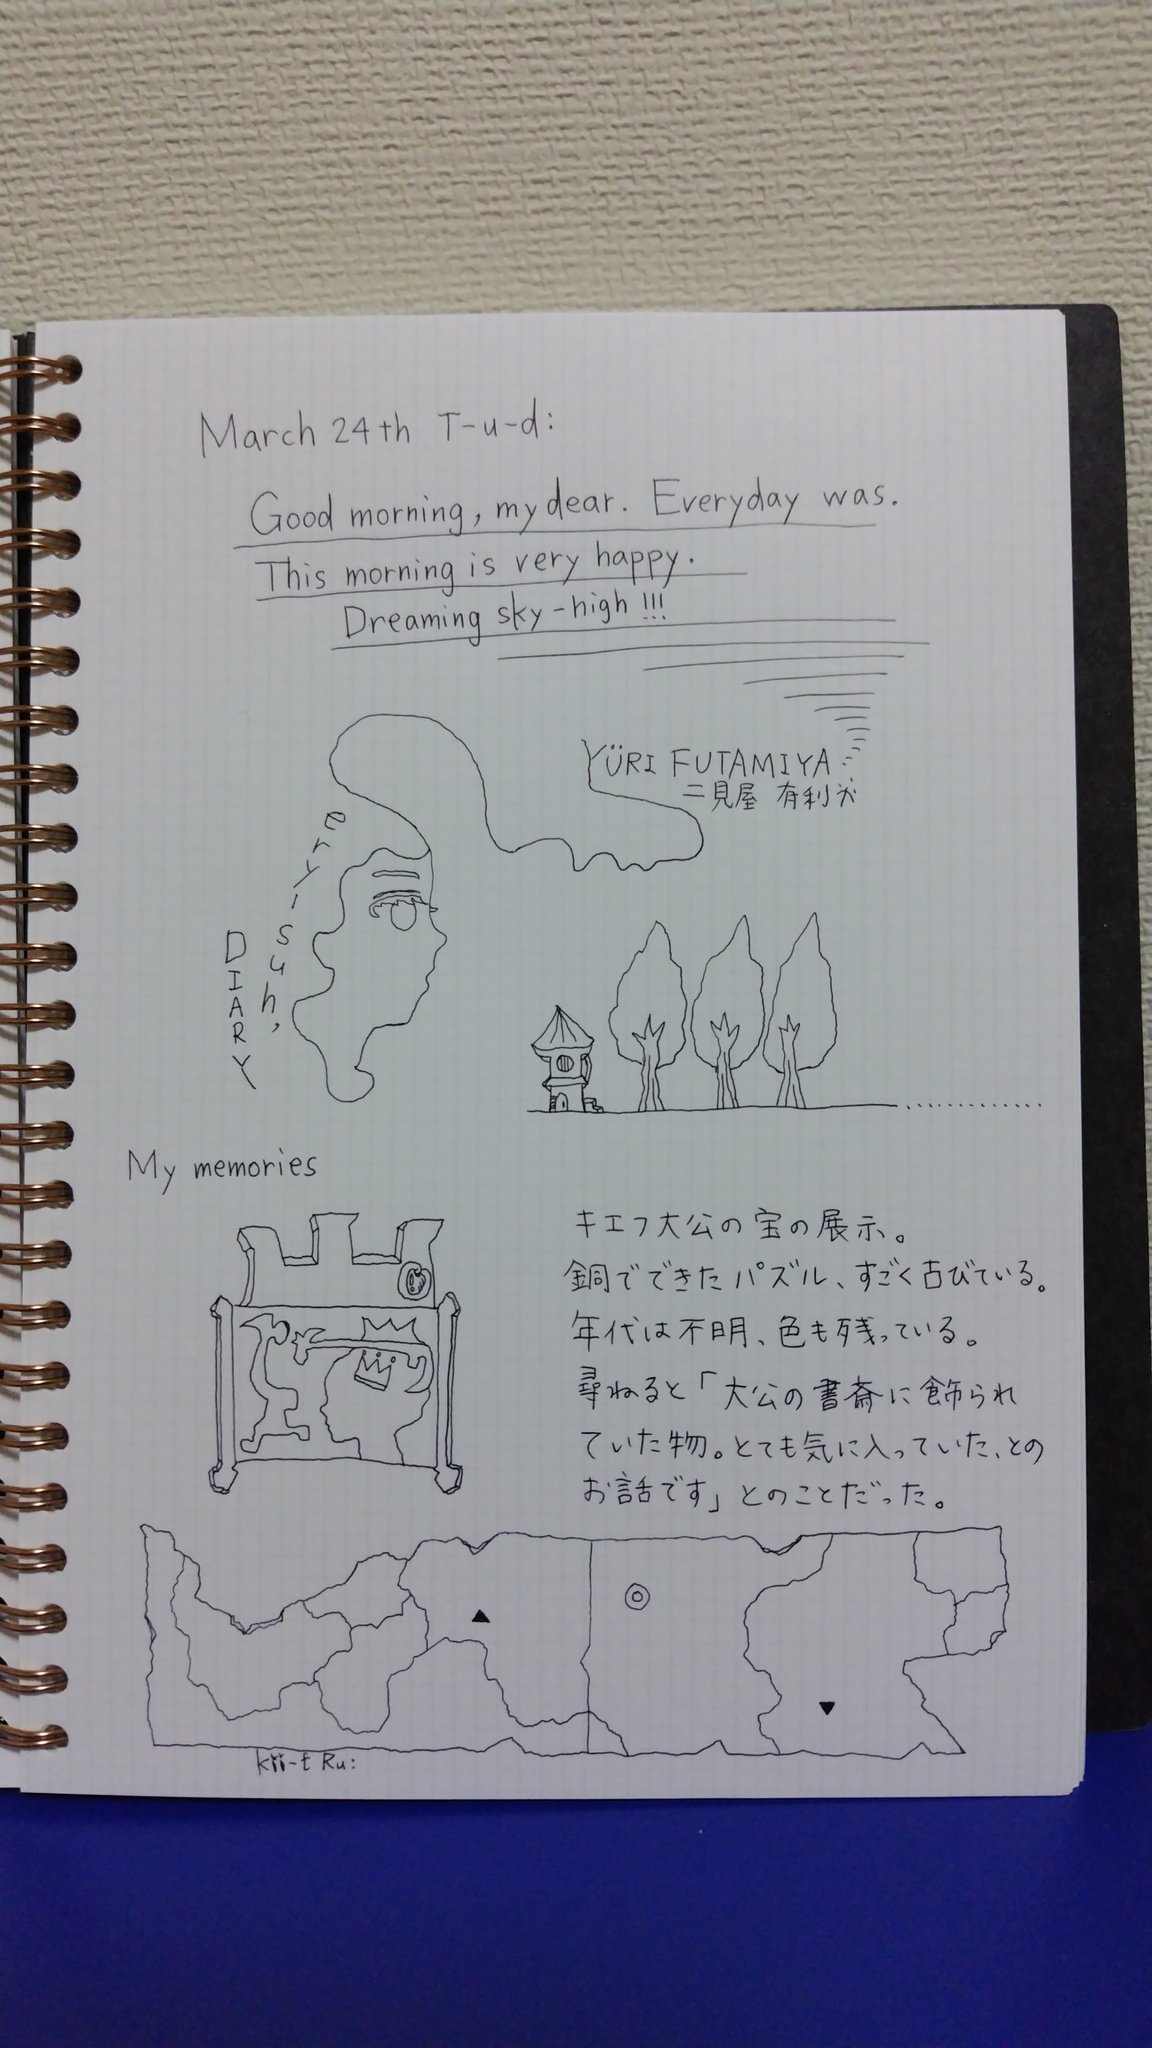 March 24th T-u-d:
Good morning, my dear. Everyday was.
This morning is very happy.
Dreaming sky-high!!!
YÜRI FUTAMIYA
二見屋 有利
DIARY
My memories
キエフ大公の宝の展示。
銅でできたパズル、すごく古びている。
年代は不明、色も残っている。
尋ねると「大公の書斎に飾られ
ていた物。とても気に入っていた、との
お話です」とのことだった。
Ru: